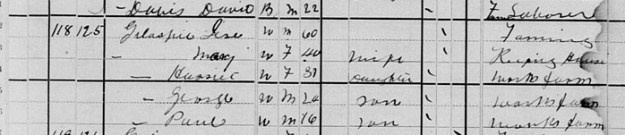 — Davis David B M 22 Laborer
118 125 Gilaspie W M 60 Farming
— Mary W F 40 Wife Keeping House
— W F 31 Daughter Works farm
— George W M 20 Son Works farm
— Paul W M 16 Son Works farm